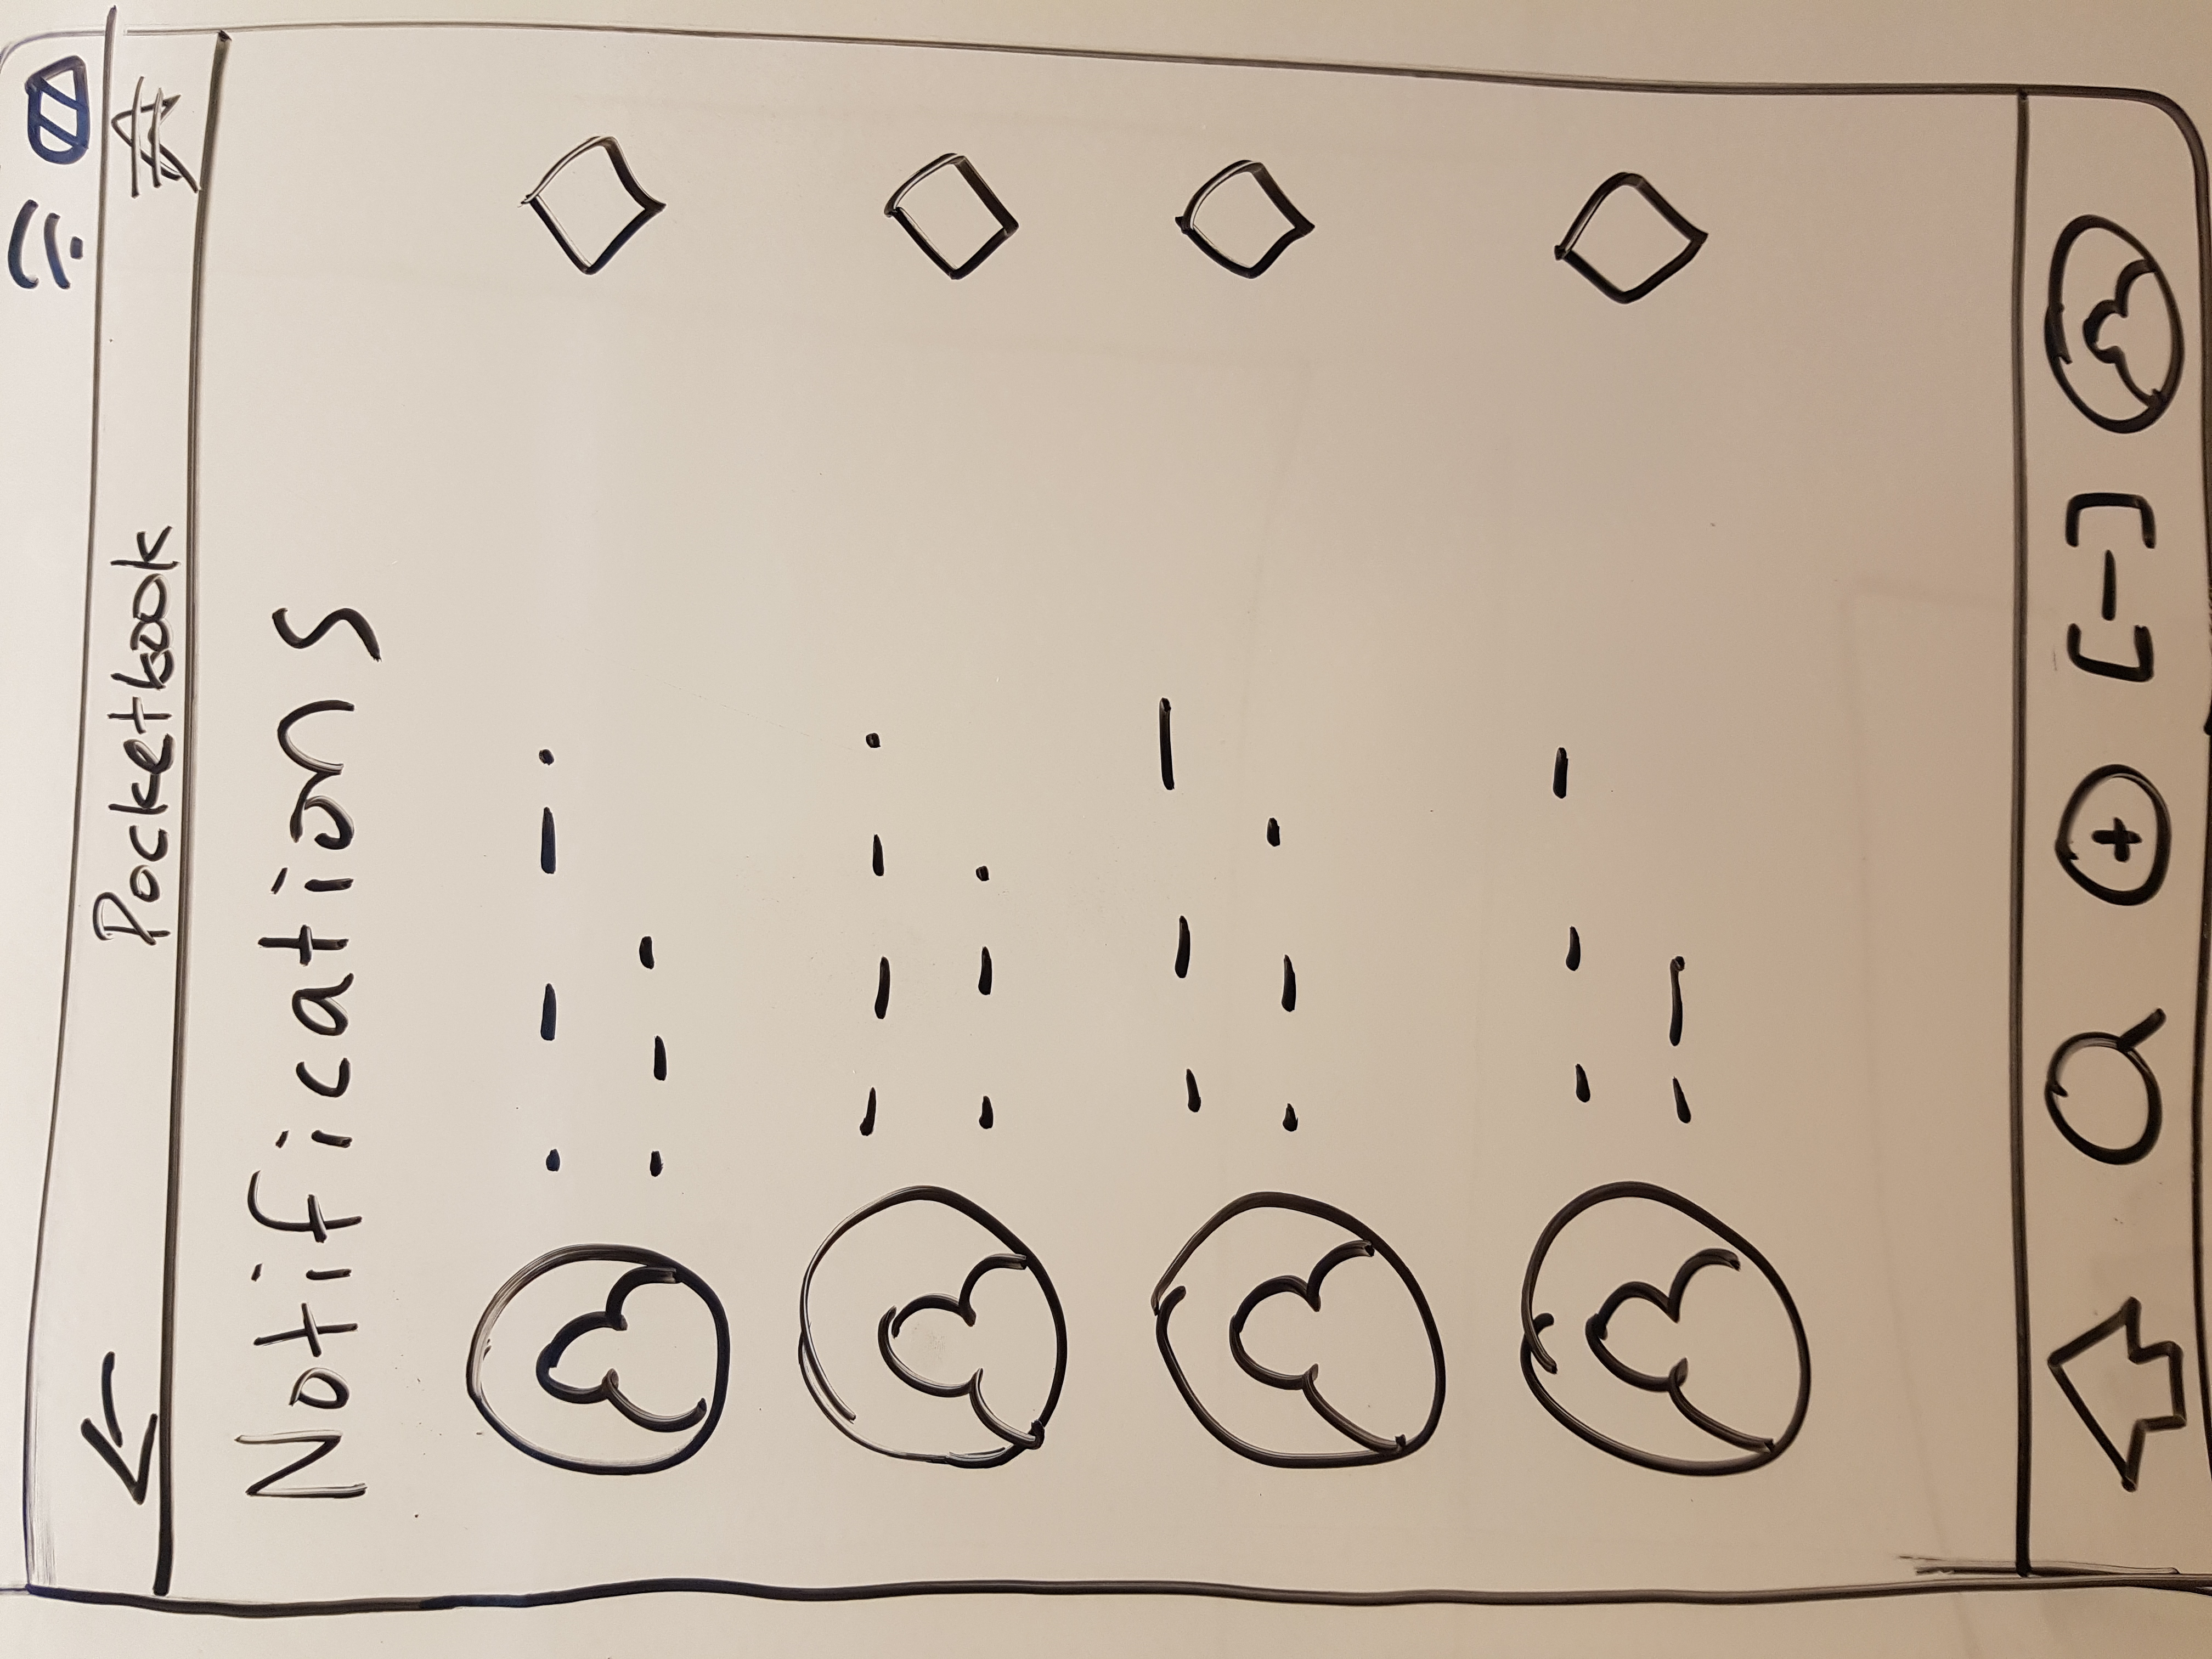 Pocketbook
Notifications